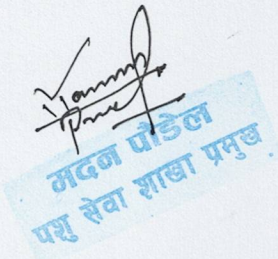 मदन पौडेल
पशु सेवा शाखा प्रमुख